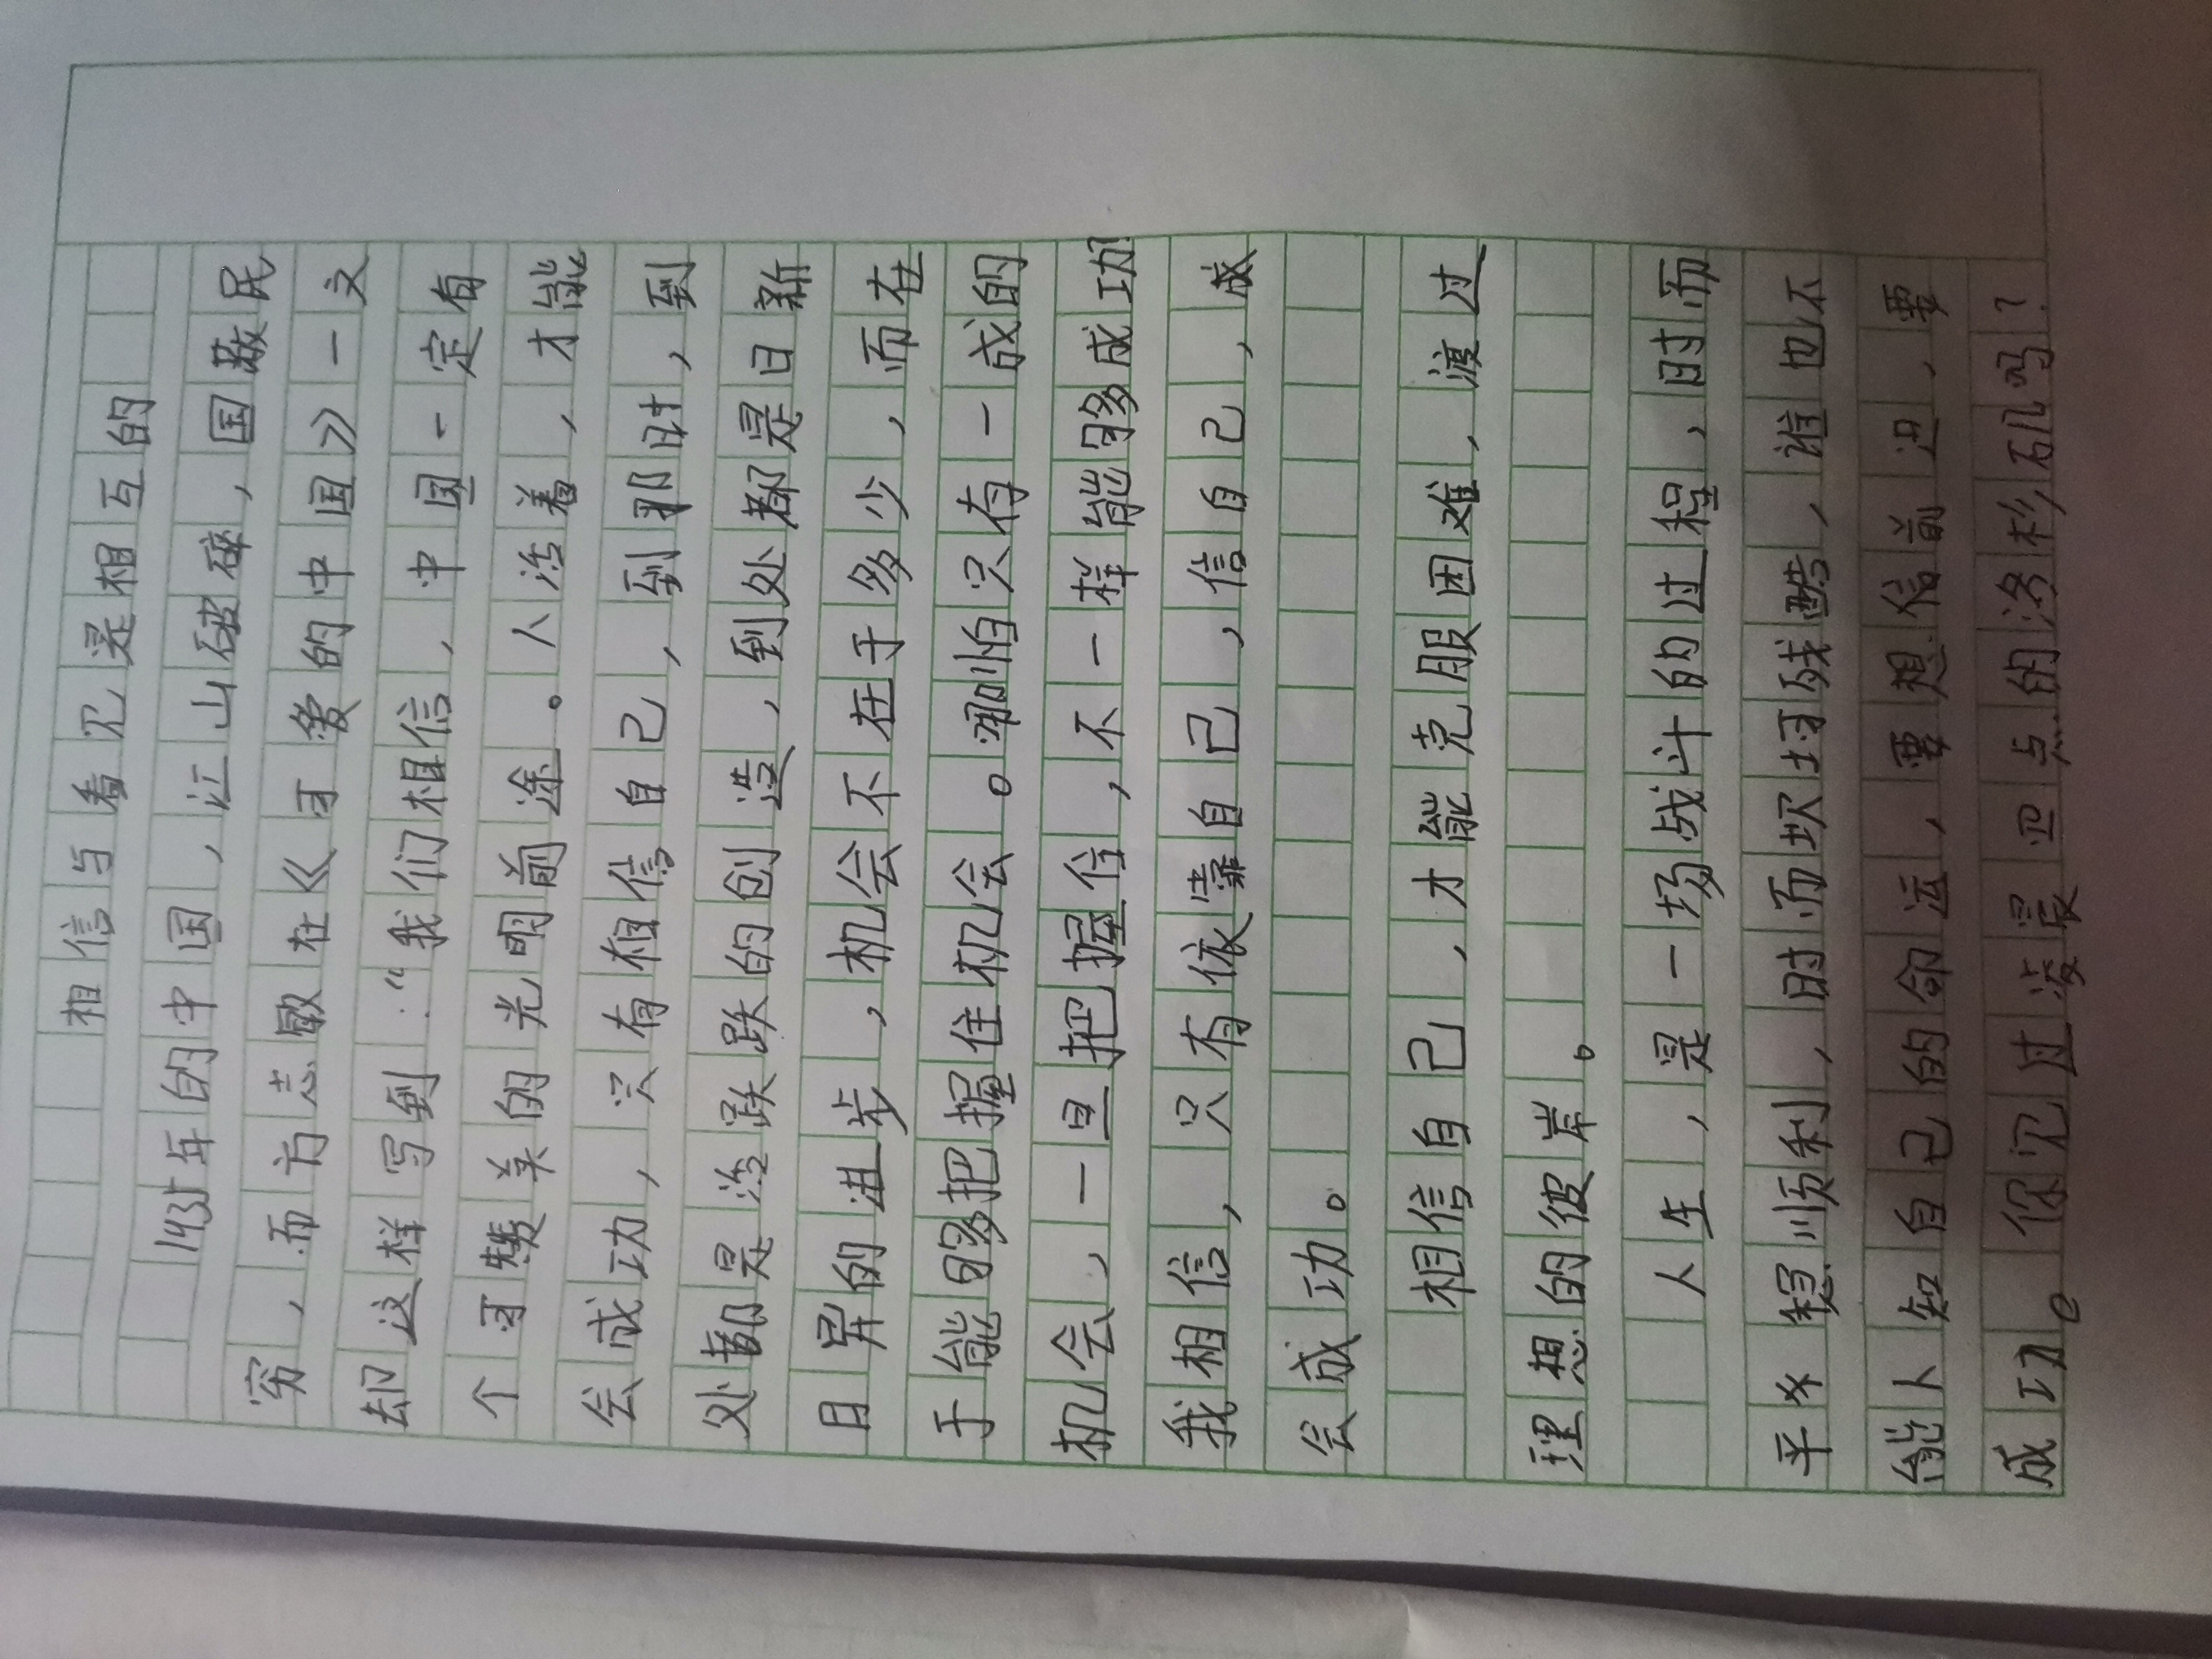 相信与看见是相互的
1935年的中国，江山破碎，国敝民
穷，而方志敏在《可爱的中国》一文
却这样写到：“我们相信，中国一定有
个可赞美的光明前途。人活着，才能
会成功，只有相信自己，到那时，到
处都是活跃跃的创造，到处都是日新
日异的进步，机会不在于多少，而在
于能够把握住机会。哪怕只有一成的
机会，一旦把握住，不一样能够成功
我相信，只有依靠自己，信自己，成
会成功。
相信自己，才能克服困难，渡过
理想的彼岸。
人生，是一场战斗的过程，时而
平平稳顺利，时而坎坷残酷，谁也不
能人知自己的命运，要想信前迅，要
成功。你见过凌晨四点的洛杉矶吗？